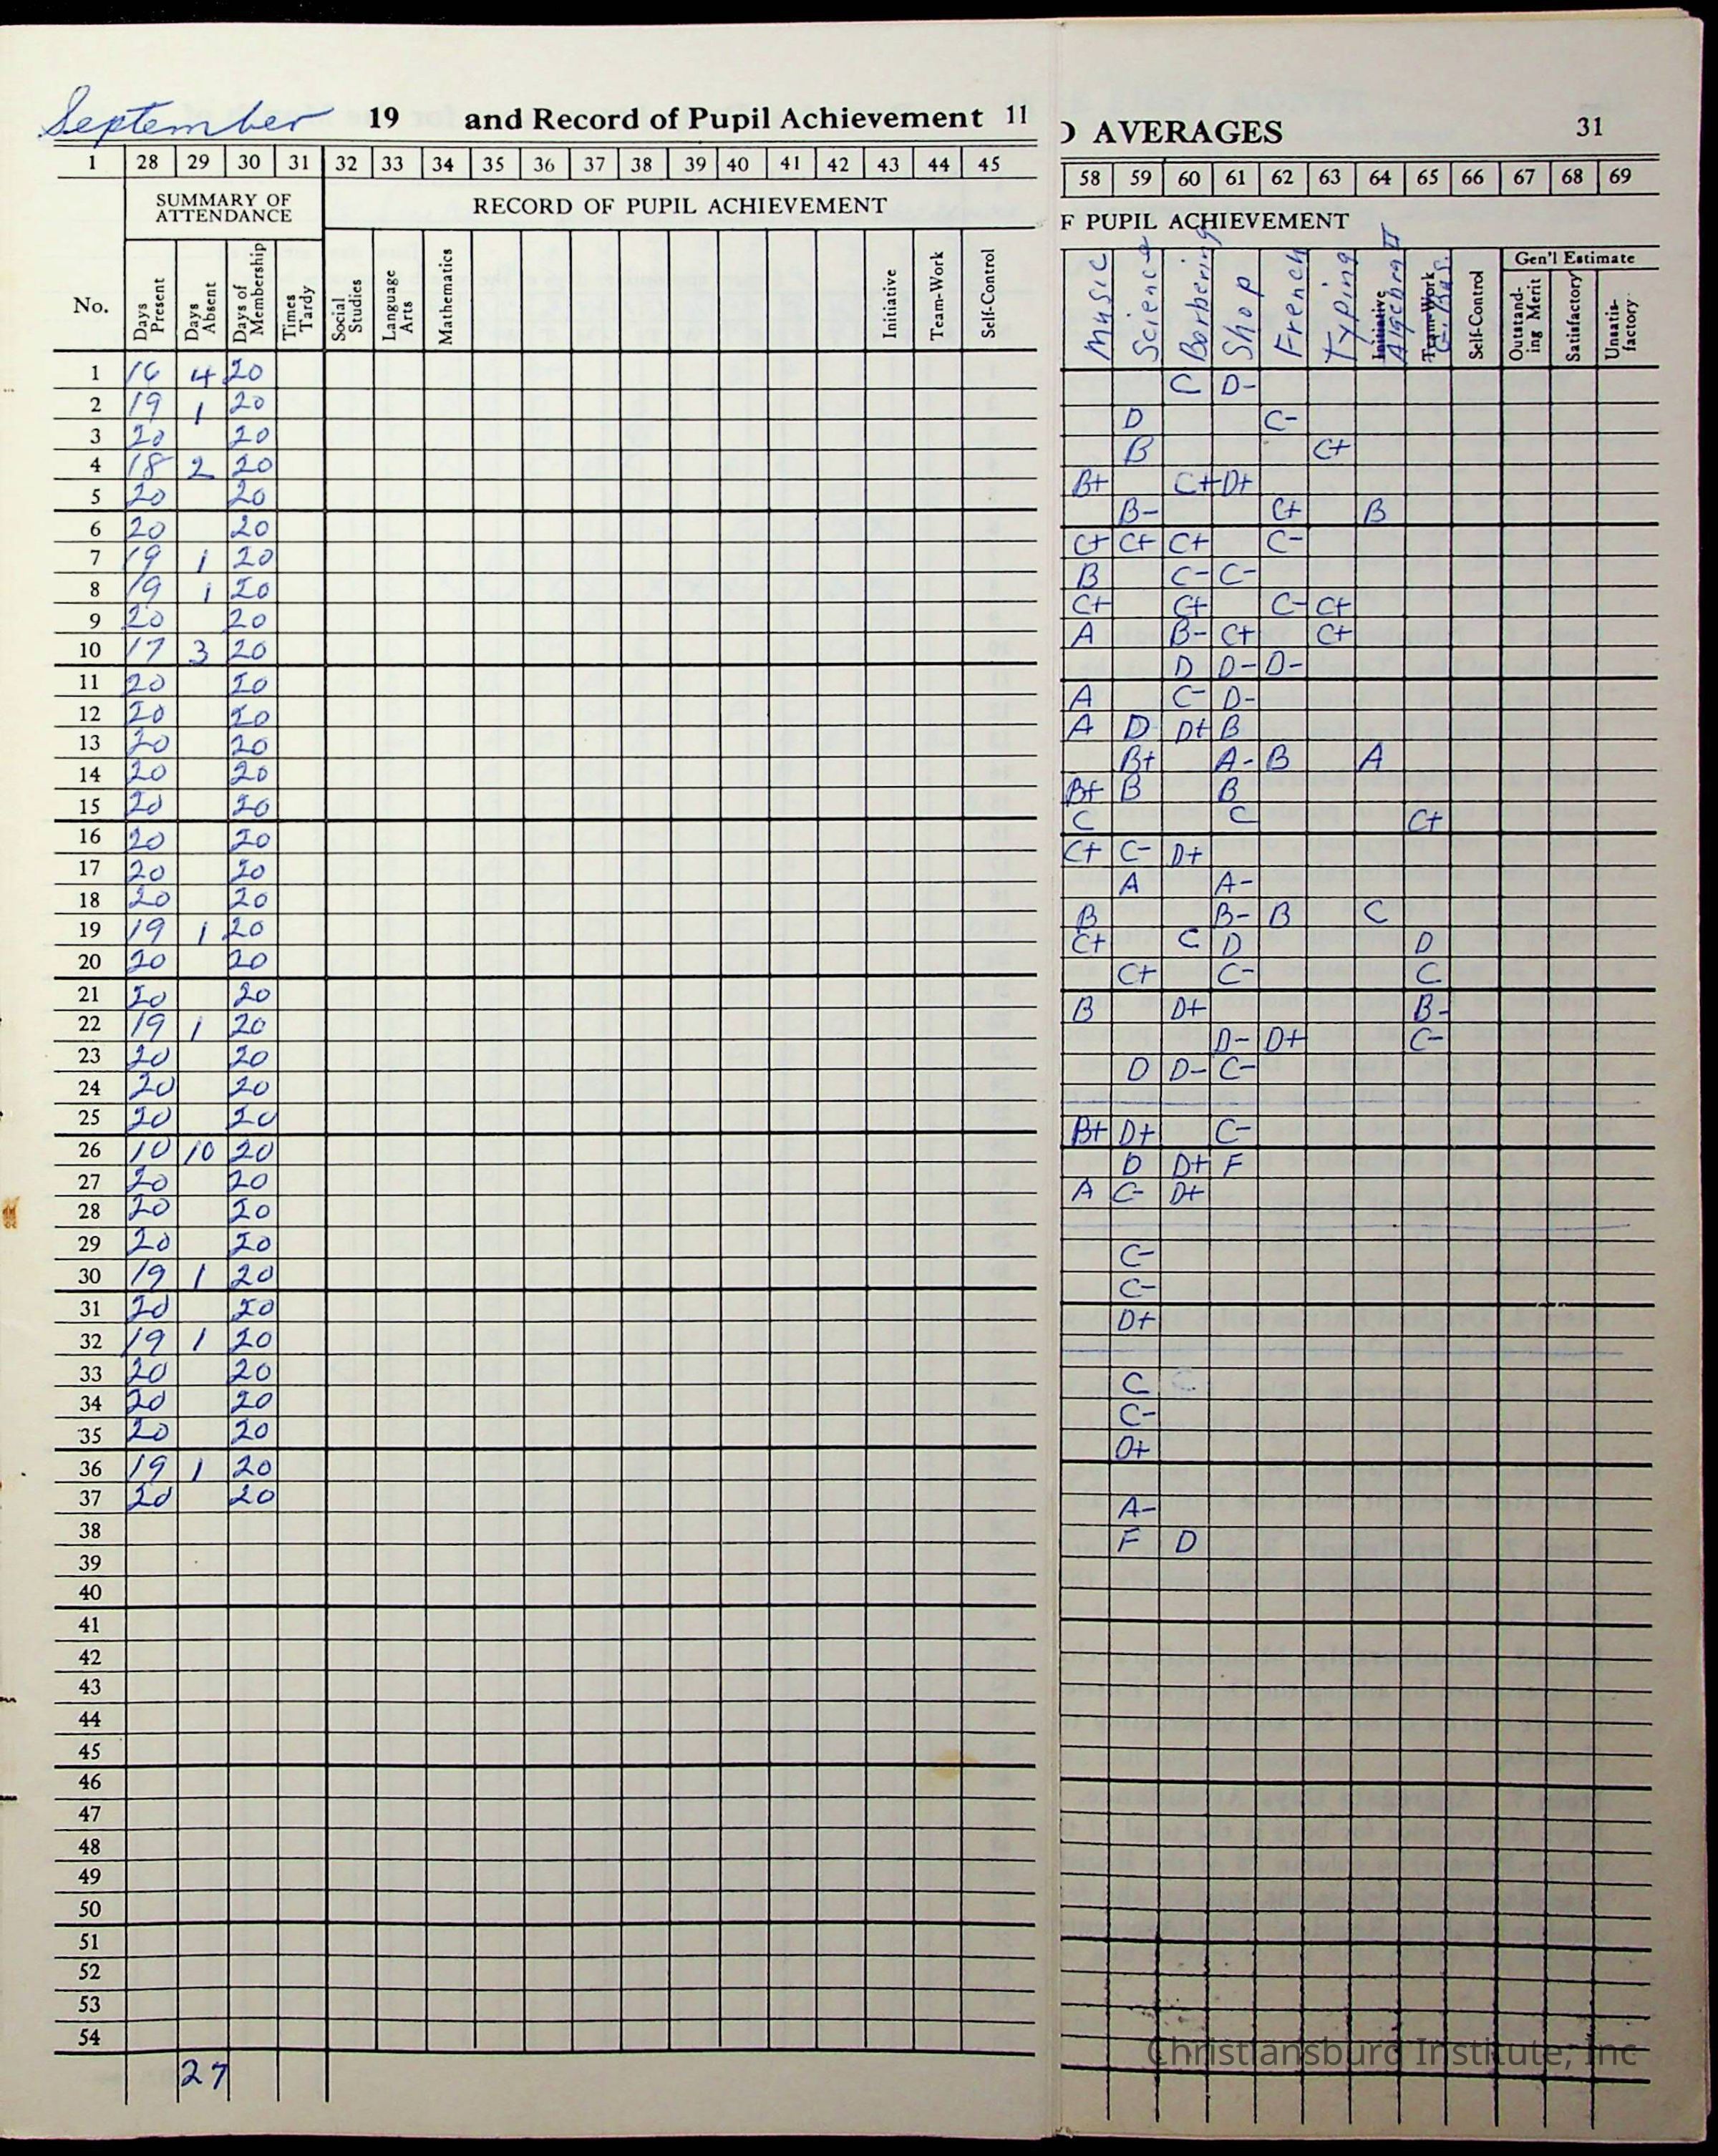 September 19 and Record of Pupil Achievement 11
1 28 29 30 31 32 33 34 35 36 37 38 39 40 41 42 43 44 45
SUMMARY OF ATTENDANCE RECORD OF PUPIL ACHIEVEMENT
No. Days Present Days Absent Days of Membership Times Tardy Social Studies Language Arts Mathematics Initiative Team-Work Self-Control
1 16 4 20
2 19 1 20
3 20 20
4 18 2 20
5 20 20
6 20 20
7 19 1 20
8 19 1 20
9 20 20
10 17 3 20
11 20 20
12 20 20
13 20 20
14 20 20
15 20 20
16 20 20
17 20 20
18 20 20
19 19 1 20
20 20 20
21 20 20
22 19 1 20
23 20 20
24 20 20
25 20 20
26 10 10 20
27 20 20
28 20 20
29 20 20
30 19 1 20
31 20 20
32 19 1 20
33 20 20
34 20 20
35 20 20
36 19 1 20
37 20 20
38
39
40
41
42
43
44
45
46
47
48
49
50
51
52
53
54
27
AVERAGES 31
58 59 60 61 62 63 64 65 66 67 68 69
F PUPIL ACHIEVEMENT
Gen'l Estimate
Music Science Barbering Shop French Typing Initiative Algebra II Team-Work G. Bus. Self-Control Outstanding Merit Satisfactory Unatisfactory
C D-
D C-
B C+
B+ C+ D+
B- C+ B
C+ C+ C+ C-
B C- C-
C+ C+ C- C+
A B- C+ C+
D D- D-
A C- D-
A D D+ B
B+ A- B A
B+ B B
C C C+
C+ C- D+
A A-
B B- B C
C+ C D D
C+ C- C
B D+ B-
D- D+ C-
D D- C-
B+ D+ C-
D D+ F
A C- D+
C-
C-
D+
C
C-
D+
A-
F D
Christiansburg Institute, Inc